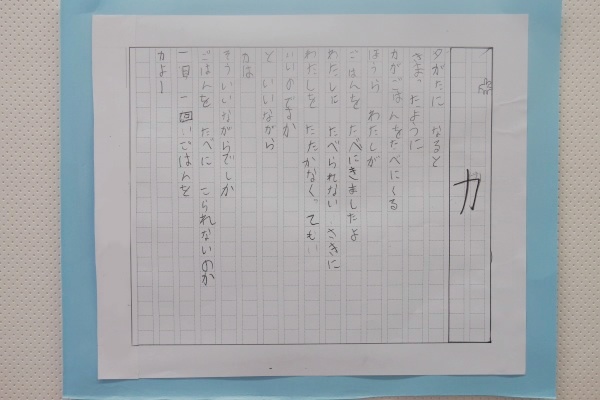 カ
夕がたに なると
きまったように
カがごはんをたべにくる
ほうら わたしが
ごはんを たべにきましたよ
わたしに たべられない さきに
わたしを たたかなくっても
いいのですか
と いいながら
カは
そういいながらでしか
ごはんを たべに こられないのか
一日 一回 ごはんを
カよー